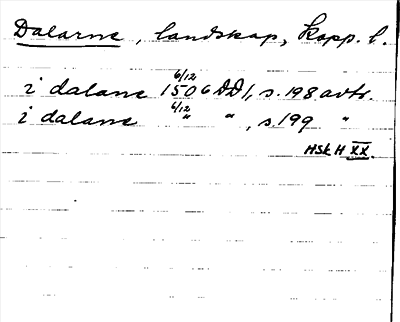 Dalarne, landskap, Kopp. l.
i dalane 6/12 1506 DD 1, s. 198 avtr.
i dalane 6/12 " " , s. 199 "
HSH XX.